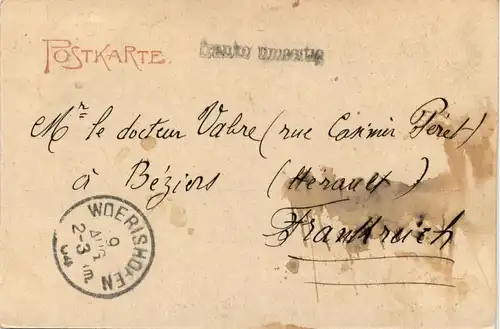 POSTKARTE.
Mr le docteur Vabre (rue Casimir Péret)
à Béziers (Hérault)
Frankreich
WOERISHOFEN
9
AUG
2-3 Nm.
04